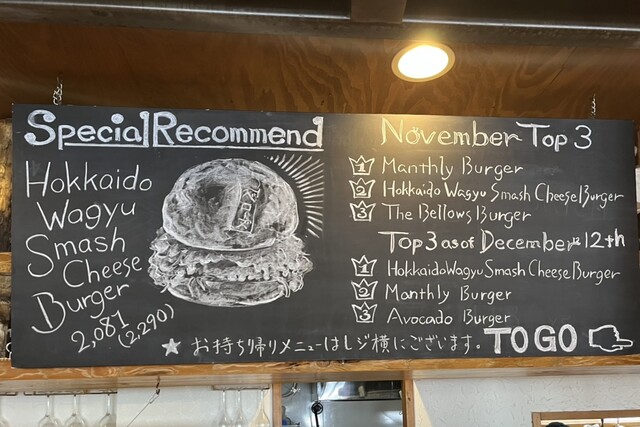 Special Recommend
Hokkaido
Wagyu
Smash
Cheese
Burger
2,081
(2,290)
November Top 3
1 Manthly Burger
2 Hokkaido Wagyu Smash Cheese Burger
3 The Bellows Burger
Top 3 as of December 12th
1 Hokkaido Wagyu Smash Cheese Burger
2 Manthly Burger
3 Avocado Burger
★ お持ち帰りメニューはレジ横にございます。 TO GO